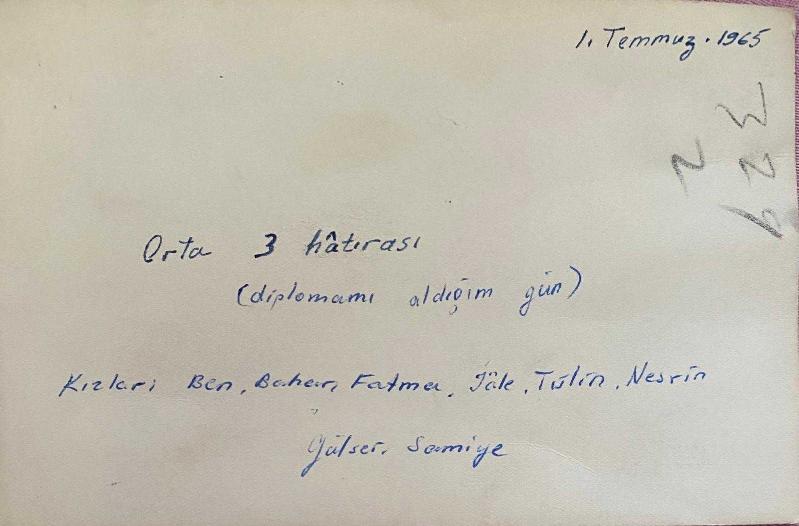 1. Temmuz. 1965
Orta 3 hâtırası
(diplomamı aldığım gün)
Kızlar: Ben, Bahar, Fatma, Jâle, Tülin, Nesrin
Gülser, Samiye